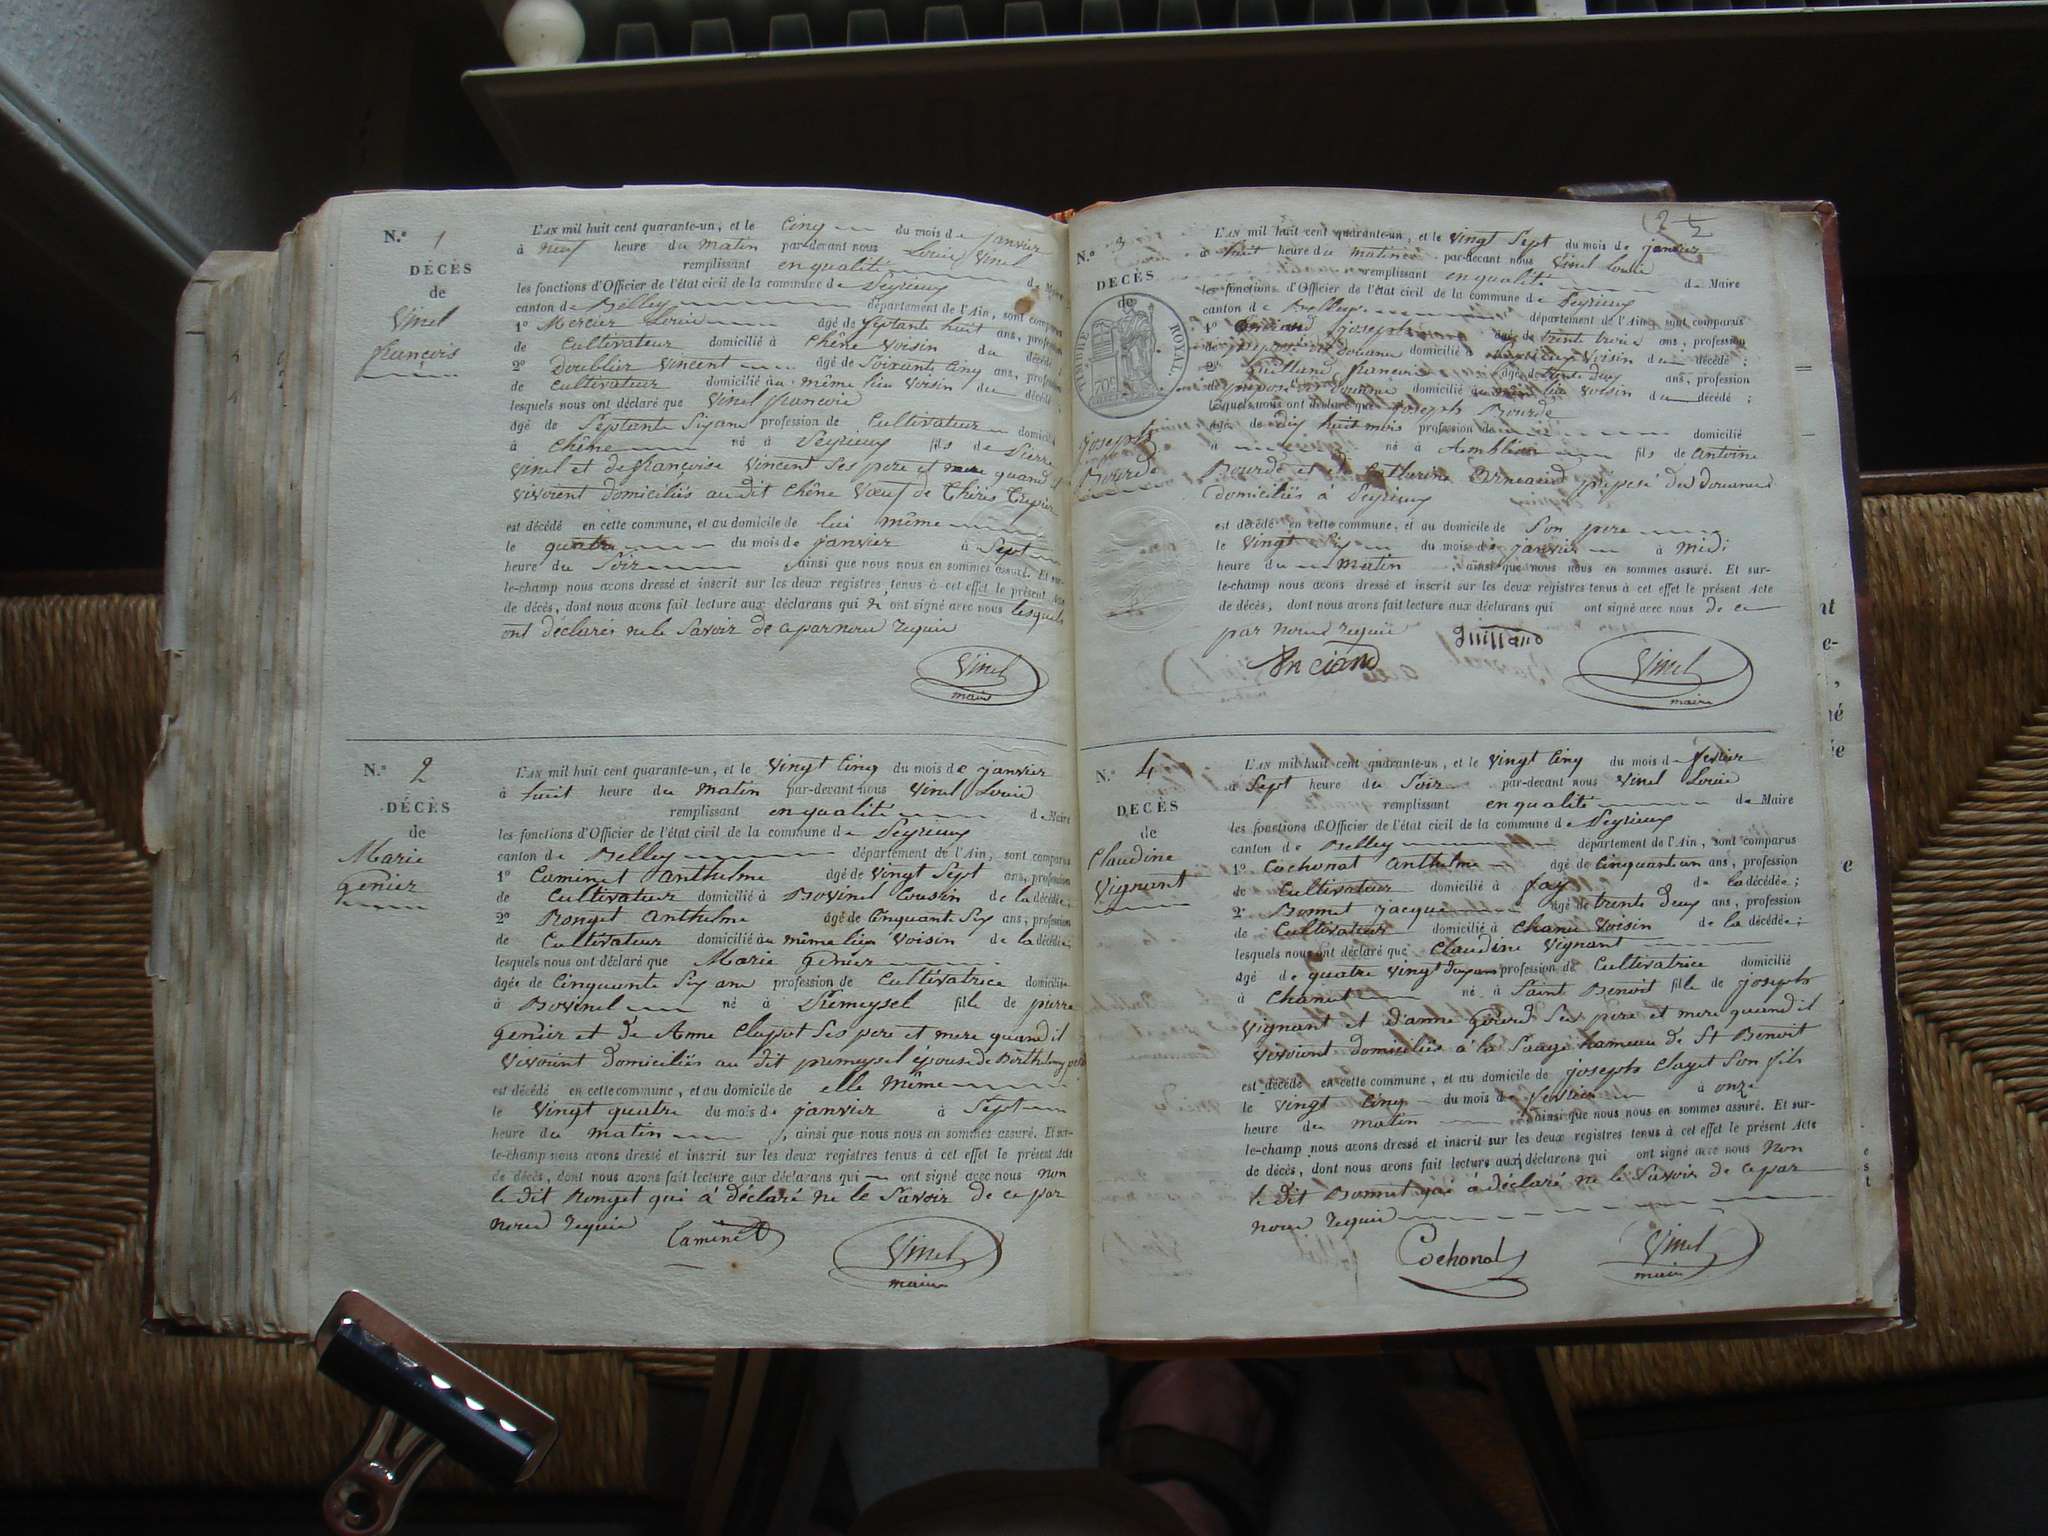 N.º 1
DÉCÈS
de
Vinel
françois
L'AN mil huit cent quarante-un, et le Cinq du mois de janvier
à neuf heure du matin par-devant nous Louis Vinel
remplissant en qualité de Maire
les fonctions d'Officier de l'état civil de la commune de Peyrieux
canton de Belley département de l'Ain, sont comparus
1º Mercier Louis âgé de septante huit ans, profession
de Cultivateur domicilié à Chêne voisin du décédé;
2º Doublier Vincent âgé de Soixante Cinq ans, profession
de Cultivateur domicilié au même lieu voisin du décédé;
lesquels nous ont déclaré que Vinel françois
âgé de Septante Six ans profession de Cultivateur domicilié
à Chêne né à Peyrieux fils de Pierre
Vinel et de françoise Vincent Ses pere et mere quand il
vivoient domiciliés au dit Chêne Vœuf de
est décédé en cette commune, et au domicile de lui même
le quatre du mois de janvier à Sept
heure du Soir ainsi que nous nous en sommes assuré. Et sur-
le-champ nous avons dressé et inscrit sur les deux registres tenus à cet effet le présent Acte
de décès, dont nous avons fait lecture aux déclarans qui ont signé avec nous lesquels
ont déclarés ne le Savoir de ce par nous requis
Vinel
maire
N.º 2
DÉCÈS
de
Marie
genier
L'AN mil huit cent quarante-un, et le vingt Cinq du mois de janvier
à huit heure du matin par-devant nous Vinel Louis
remplissant en qualité de Maire
les fonctions d'Officier de l'état civil de la commune de Peyrieux
canton de Belley département de l'Ain, sont comparus
1º Caminet Anthelme âgé de vingt Sept ans, profession
de Cultivateur domicilié à Bovinel Cousin de la décédée;
2º Ronget Anthelme âgé de Cinquante Six ans, profession
de Cultivateur domicilié au même lieu voisin de la décédée
lesquels nous ont déclaré que Marie genier
âgée de Cinquante Six ans profession de Cultivatrice domicilié
à Bovinel né à Premeysel fille de pierre
genier et de Anne Clapot Ses pere et mere quand il
vivoint domiciliés au dit premeysel épouse de Berthelemy
est décédé en cette commune, et au domicile de elle même
le vingt quatre du mois de janvier à Sept
heure du matin, ainsi que nous nous en sommes assuré. Et sur-
le-champ nous avons dressé et inscrit sur les deux registres tenus à cet effet le présent Acte
de décès, dont nous avons fait lecture aux déclarans qui ont signé avec nous non
le dit Ronget qui à déclaré ne le Savoir de ce par
nous requis
Caminet
Vinel
maire
N.º 3
DÉCÈS
de
TIMBRE ROYAL
70c
joseph
Bourde
L'AN mil huit cent quarante-un, et le vingt Sept du mois de janvier
à huit heure du matin par-devant nous Vinel Louis
remplissant en qualité de Maire
les fonctions d'Officier de l'état civil de la commune de Peyrieux
canton de Belley département de l'Ain, sont comparus
1º Anciand joseph âgé de trente trois ans, profession
de préposé des douanes domicilié à Peyrieux Voisin du décédé;
2º Guilland françois âgé de trente deux ans, profession
de préposé des douane domicilié au même lieu voisin du décédé;
lesquels nous ont déclaré que joseph Bourde
âgé de dix huit mois profession de domicilié
à né à Ambléon fils de Antoine
Bourde et de Catherine préposé des Douanes
domiciliés à Peyrieux
est décédé en cette commune, et au domicile de Son pere
le vingt Six du mois de janvier à midi
heure du matin, ainsi que nous nous en sommes assuré. Et sur-
le-champ nous avons dressé et inscrit sur les deux registres tenus à cet effet le présent Acte
de décès, dont nous avons fait lecture aux déclarans qui ont signé avec nous de ce
par nous requis
guilland
Anciand
Vinel
maire
N.º 4
DÉCÈS
de
Claudine
Vignant
L'AN mil huit cent quarante-un, et le vingt Cinq du mois de fevrier
à Sept heure du Soir par-devant nous Vinel Louis
remplissant en qualité de Maire
les fonctions d'Officier de l'état civil de la commune de Peyrieux
canton de Belley département de l'Ain, sont comparus
1º Cochonat Anthelme âgé de Cinquant un ans, profession
de Cultivateur domicilié à fay de la décédée;
2º Bonnet jacque âgé de trente deux ans, profession
de Cultivateur domicilié à Chanu voisin de la décédée;
lesquels nous ont déclaré que Claudine Vignant
âgé de quatre vingt deux ans profession de Cultivatrice domicilié
à Chanu né à Saint Benoit fille de joseph
Vignant et d'anne gerard Ses pere et mere quand il
vivoient domiciliés à la Saugé hameau de St Benoit
est décédé en cette commune, et au domicile de joseph Clayet Son fils
le vingt Cinq du mois de fevrier à onze
heure du matin, ainsi que nous nous en sommes assuré. Et sur-
le-champ nous avons dressé et inscrit sur les deux registres tenus à cet effet le présent Acte
de décès, dont nous avons fait lecture aux déclarans qui ont signé avec nous non
le dit Bonnet qui à déclaré ne le Savoir de ce par
nous requis
Cochonat
Vinel
maire